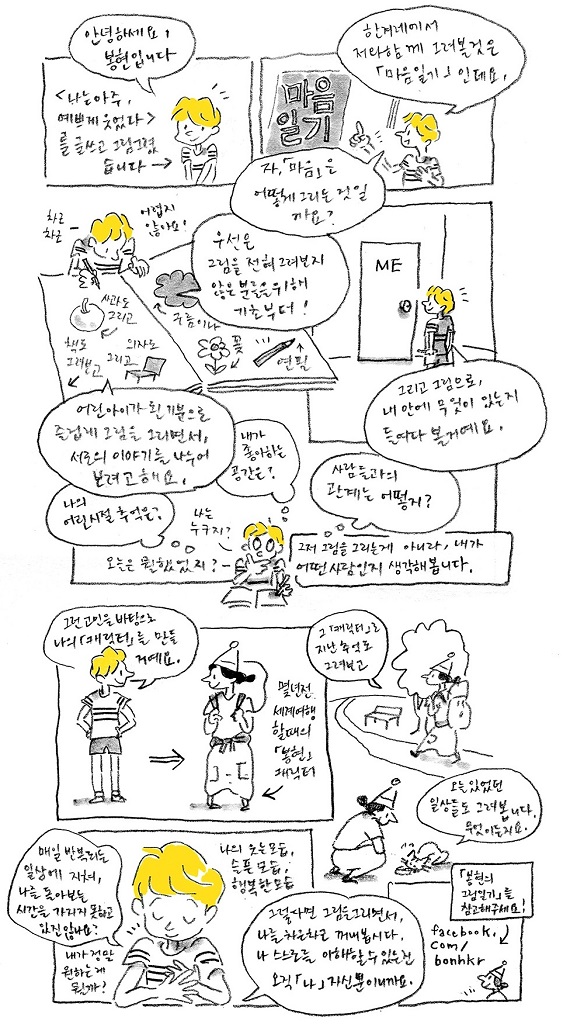 안녕하세요!
봉현입니다
<나는 아주,
예쁘게 웃었다>
를 글쓰고 그림그렸
습니다→
한겨레에서
저와 함께 그려볼것은
「마음일기」인데요,
마음
일기
자,「마음」은
어떻게 그리는 것일
까요?
차근
차근
어렵지
않아요!
우선은
그림을 전혀 그려보지
않은 분들을 위해
기초부터!
사과도
그리고
구름이나
책도
그려보고
의자도
그리고
꽃
연필
ME
어린아이가 된 기분으로
즐겁게 그림을 그리면서,
서로의 이야기를 나누어
보려고 해요.
그리고 그림으로,
내 안에 무엇이 있는지
들여다 볼거예요.
내가
좋아하는
공간은?
사람들과의
관계는 어떻지?
나의
어린시절 추억은?
나는
누구지?
오늘은 뭘 했었지?
그저 그림을 그리는게 아니라, 내가
어떤 사람인지 생각해봅니다.
그런 고민을 바탕으로
나의「캐릭터」를 만들
거예요.
몇년전
세계여행
할때의
「봉현」
캐릭터
그「캐릭터」로
지난 추억도
그려보고
오늘 있었던
일상들도 그려봅니다.
무엇이든지요.
매일 반복되는
일상에 지쳐,
나를 돌아보는
시간을 가지지 못하고
있진 않나요?
내가 정말
원하는 게
뭘까?
나의 웃는모습,
슬픈 모습,
행복한 모습
그렇다면 그림을 그리면서,
나를 차근차근 꺼내봅시다.
나 스스로를 이해할 수 있는건
오직「나」자신 뿐이니까요.
「봉현의
그림일기」를
참고해주세요!
facebook.
com/
bonhkr